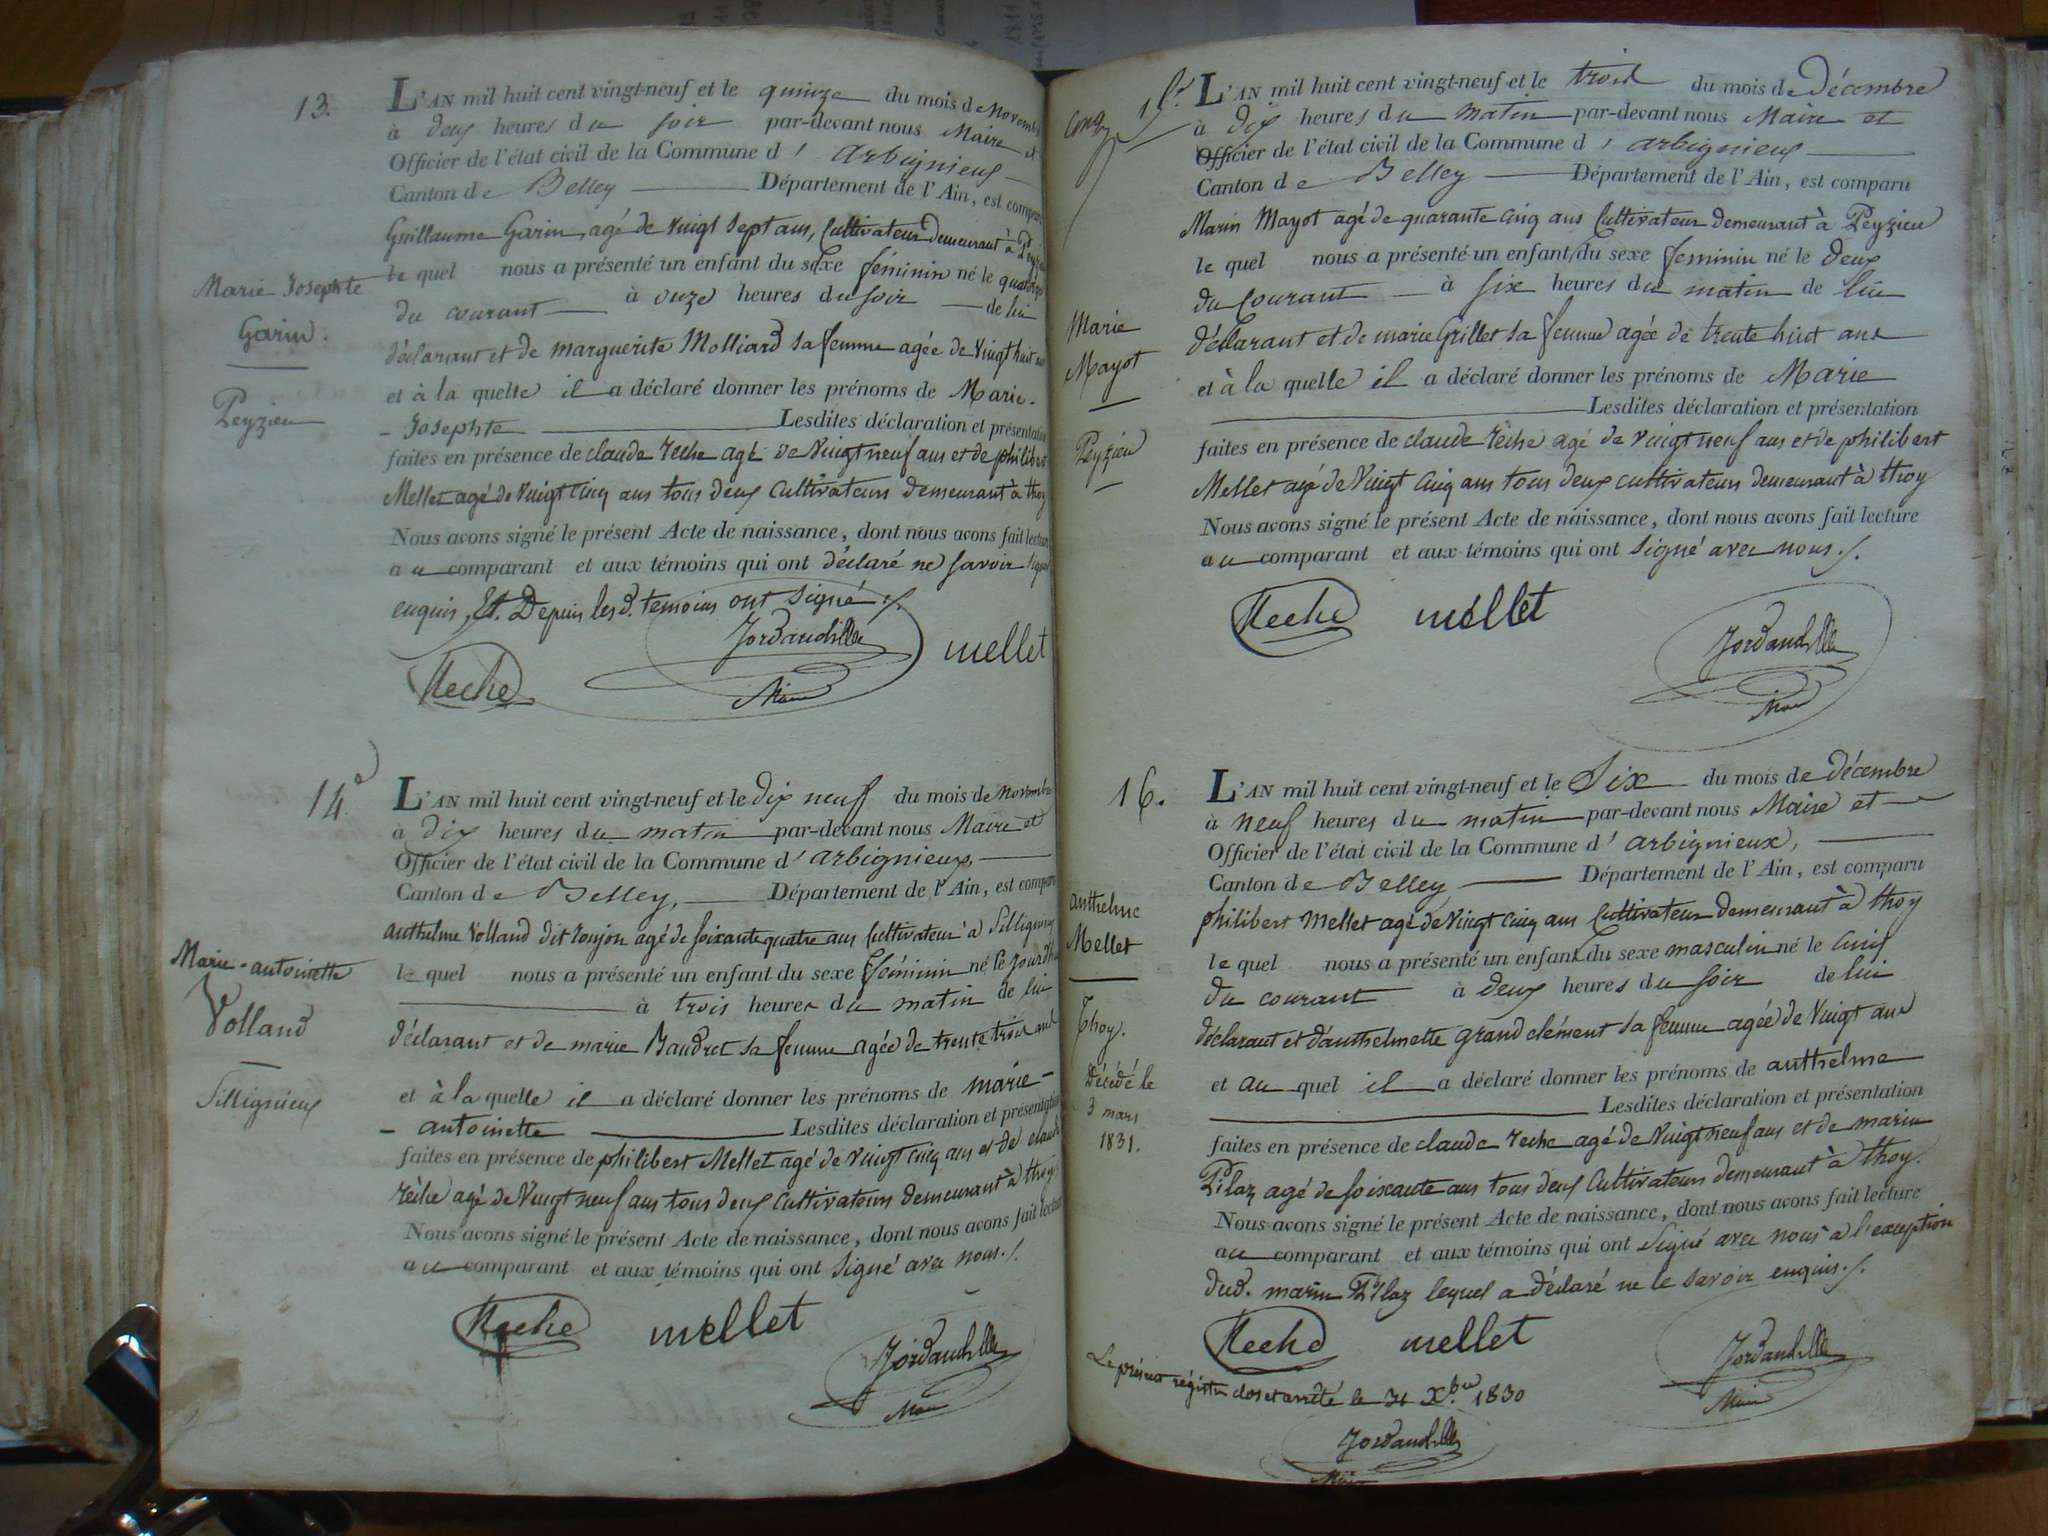 13.
L'AN mil huit cent vingt-neuf et le quinze du mois de Novembre
à deux heures du soir par-devant nous Maire et
Officier de l'état civil de la Commune d' arbignieux
Canton de Belley Département de l'Ain, est comparu
Guillaume Garin, agé de vingt sept ans, Cultivateur Demeurant à Peyzieu
le quel nous a présenté un enfant du sexe féminin né le quatorze
du courant à onze heures du soir de lui
déclarant et de marguerite Molliard sa femme agée de Vingt huit ans
et à la quelle il a déclaré donner les prénoms de Marie-
- Josephte Lesdites déclaration et présentation
faites en présence de claude reche agé de Vingt neuf ans et de philibert
Mellet agé de Vingt cinq ans tous deux cultivateurs demeurant à thoy
Nous avons signé le présent Acte de naissance, dont nous avons fait lecture
au comparant et aux témoins qui ont déclaré ne savoir signer
enquis, Et. Depuis lesd. temoins ont signé ./.
Marie Josephte
Garin.
Peyzieu
Reche
Jordan
Maire
mellet
14e
L'AN mil huit cent vingt-neuf et le dix neuf du mois de Novembre
à dix heures du matin par-devant nous Maire et
Officier de l'état civil de la Commune d' arbignieux,
Canton de Belley, Département de l'Ain, est comparu
anthelme Volland dit ronjon agé de soixante quatre ans Cultivateur à Sillignieux
le quel nous a présenté un enfant du sexe féminin né le jourd'hui
à trois heures du matin de lui
déclarant et de marie Baudret sa femme agée de trente trois ans
et à la quelle il a déclaré donner les prénoms de marie-
- antoinette Lesdites déclaration et présentation
faites en présence de philibert Mellet agé de vingt cinq ans et de claude
rèche agé de Vingt neuf ans tous deux cultivateurs demeurant à thoy
Nous avons signé le présent Acte de naissance, dont nous avons fait lecture
au comparant et aux témoins qui ont signé avec nous ./.
Marie-antoinette
Volland
Sillignieux
Reche
mellet
Jordan
Maire
15e
L'AN mil huit cent vingt-neuf et le trois du mois de décembre
à dix heures du matin par-devant nous Maire et
Officier de l'état civil de la Commune d' arbignieux
Canton de Belley Département de l'Ain, est comparu
Marin Mayot agé de quarante cinq ans Cultivateur demeurant à Peyzieu
le quel nous a présenté un enfant du sexe féminin né le deux
du courant à six heures du matin de lui
déclarant et de marie Grillet sa femme agée de trente huit ans
et à la quelle il a déclaré donner les prénoms de Marie
Lesdites déclaration et présentation
faites en présence de claude rèche agé de vingt neuf ans et de philibert
Mellet agé de Vingt cinq ans tous deux cultivateurs demeurant à thoy
Nous avons signé le présent Acte de naissance, dont nous avons fait lecture
au comparant et aux témoins qui ont signé avec nous ./.
Marie
Mayot
Peyzieu
Reche
mellet
Jordan
Maire
16.
L'AN mil huit cent vingt-neuf et le Six du mois de décembre
à neuf heures du matin par-devant nous Maire et
Officier de l'état civil de la Commune d' arbignieux,
Canton de Belley Département de l'Ain, est comparu
philibert Mellet agé de Vingt cinq ans Cultivateur demeurant à thoy
le quel nous a présenté un enfant du sexe masculin né le cinq
du courant à deux heures du soir de lui
déclarant et d'anthelmette grand clément sa femme agée de Vingt ans
et au quel il a déclaré donner les prénoms de anthelme
Lesdites déclaration et présentation
faites en présence de claude reche agé de Vingt neuf ans et de marin
Pilaz agé de soixante ans tous deux Cultivateurs demeurant à thoy.
Nous avons signé le présent Acte de naissance, dont nous avons fait lecture
au comparant et aux témoins qui ont signé avec nous à l'exception
dud. marin Pilaz lequel a déclaré ne le savoir enquis ./.
anthelme
Mellet
Thoy.
Décédé le
3 mars
1831.
Reche
mellet
Jordan
Maire
Le présent régistre clos et arrêté le 31 Xbre 1830
Jordan
Maire